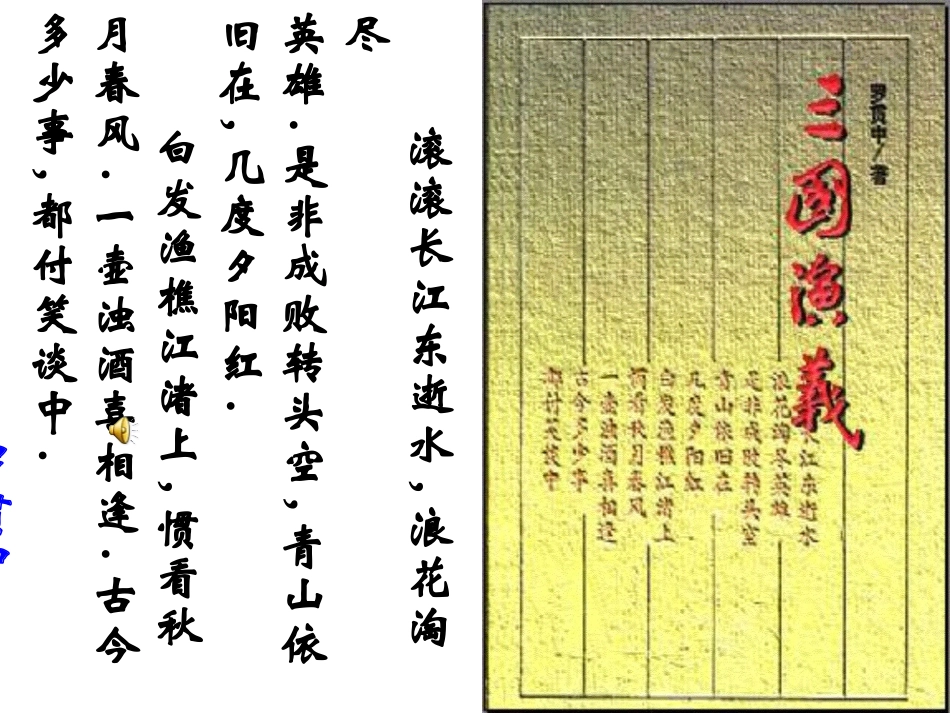 罗贯中/著
三國演義
江东逝水
浪花淘尽英雄
是非成败转头空
青山依旧在
几度夕阳红
白发渔樵江渚上
惯看秋月春风
一壶浊酒喜相逢
古今多少事
都付笑谈中
滚滚长江东逝水,浪花淘
尽
英雄.是非成败转头空,青山依
旧在,几度夕阳红.
白发渔樵江渚上,惯看秋
月春风.一壶浊酒喜相逢.古今
多少事,都付笑谈中.